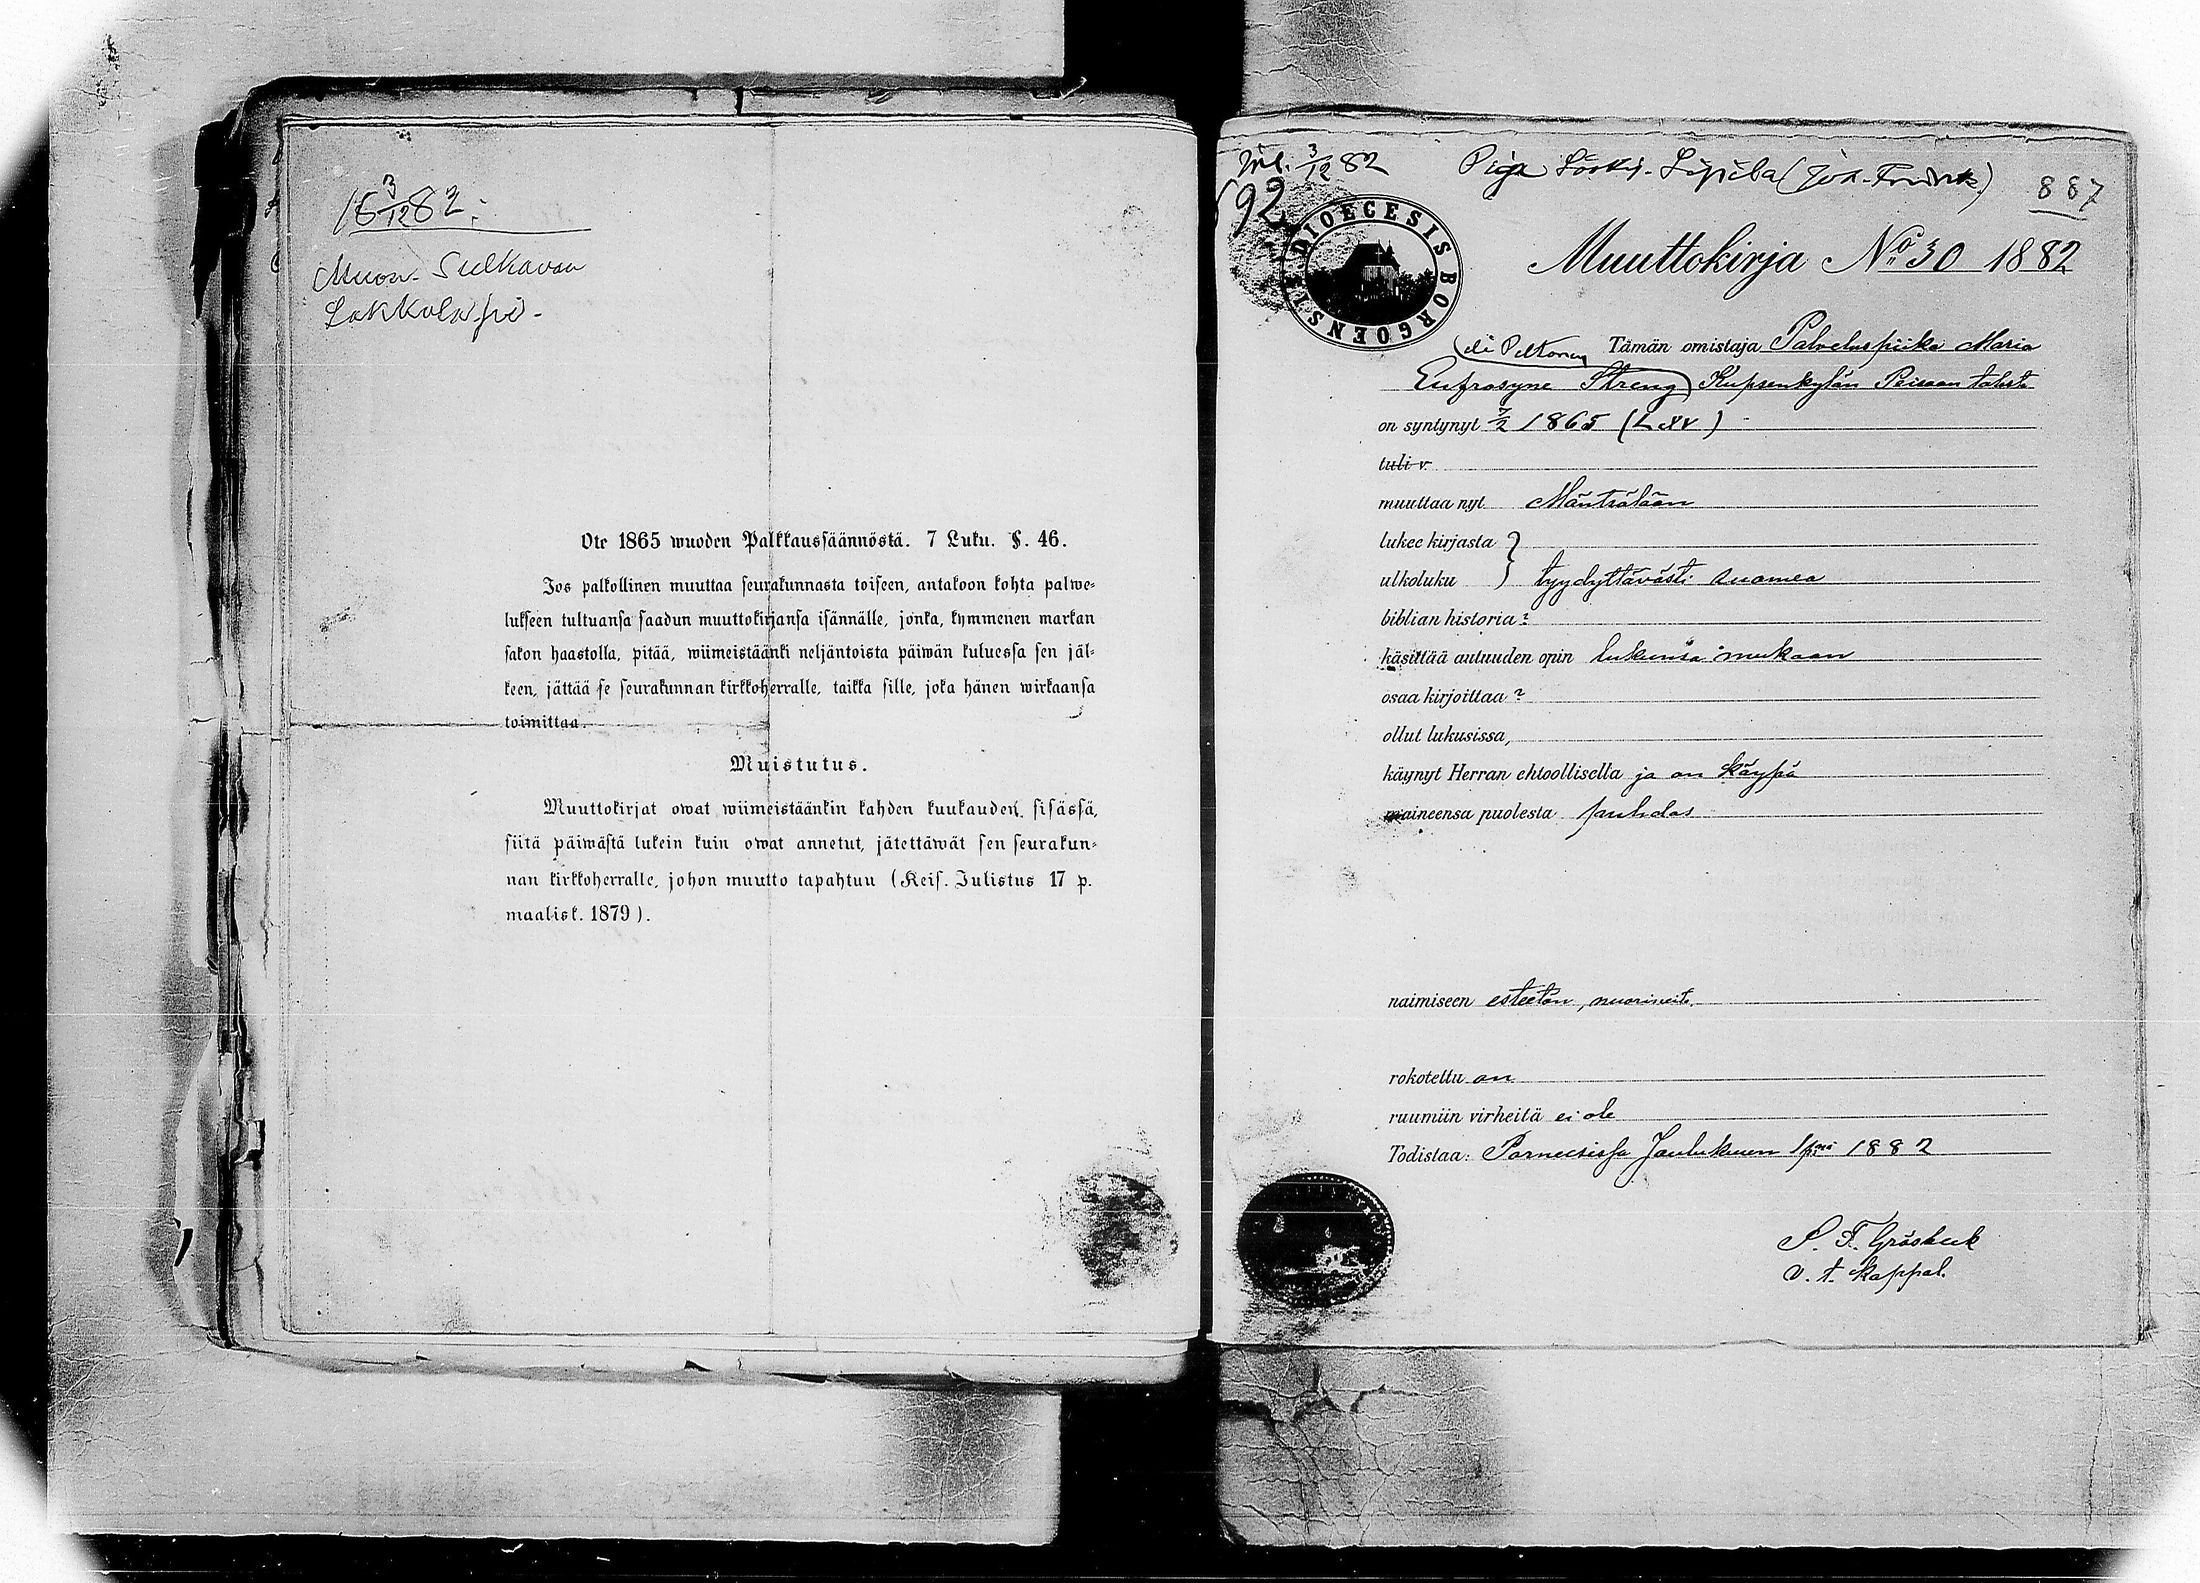 16 3/12 82.
Muon. Sulkavan
Lakkola
Ote 1865 wuoden Palkkaussäännöstä. 7 Luku. §. 46.
Jos palkollinen muuttaa seurakunnasta toiseen, antakoon kohta palwe-
lukseen tultuansa saadun muuttokirjansa isännälle, jonka, kymmenen markan
sakon haastolla, pitää, wiimeistäänki neljäntoista päiwän kuluessa sen jäl-
keen, jättää se seurakunnan kirkkoherralle, taikka sille, joka hänen wirkaansa
toimittaa.
Muistutus.
Muuttokirjat owat wiimeistäänkin kahden kuukauden sisässä,
siitä päiwästä lukein kuin owat annetut, jätettäwät sen seurakun-
nan kirkkoherralle, johon muutto tapahtuu (Keis. Julistus 17 p.
maalisk. 1879).
Inl. 3/12 82 Piga
887
92
DIOECESIS BORGOENSIS
Muuttokirja No. 30 1882
(eli Peltonen Tämän omistaja Palveluspiika Maria
Eufrosyne Streng) Kupsenkylän Peisaan talosta
on syntynyt 7/2 1865 (LXV)
tuli v
muuttaa nyt Mäntsälään
lukee kirjasta
ulkoluku } tyydyttävästi suomea
biblian historia?
käsittää autuuden opin lukunsa mukaan
osaa kirjoittaa?
ollut lukusissa,
käynyt Herran ehtoollisella ja on käypä
maineensa puolesta puhdas
naimiseen esteetön, nuorineito.
rokotettu on
ruumiin virheitä ei ole
Todistaa: Porneesissa Joulukuun 1 p:nä 1882
S. F. Gräsbeck
v. t. kappal.